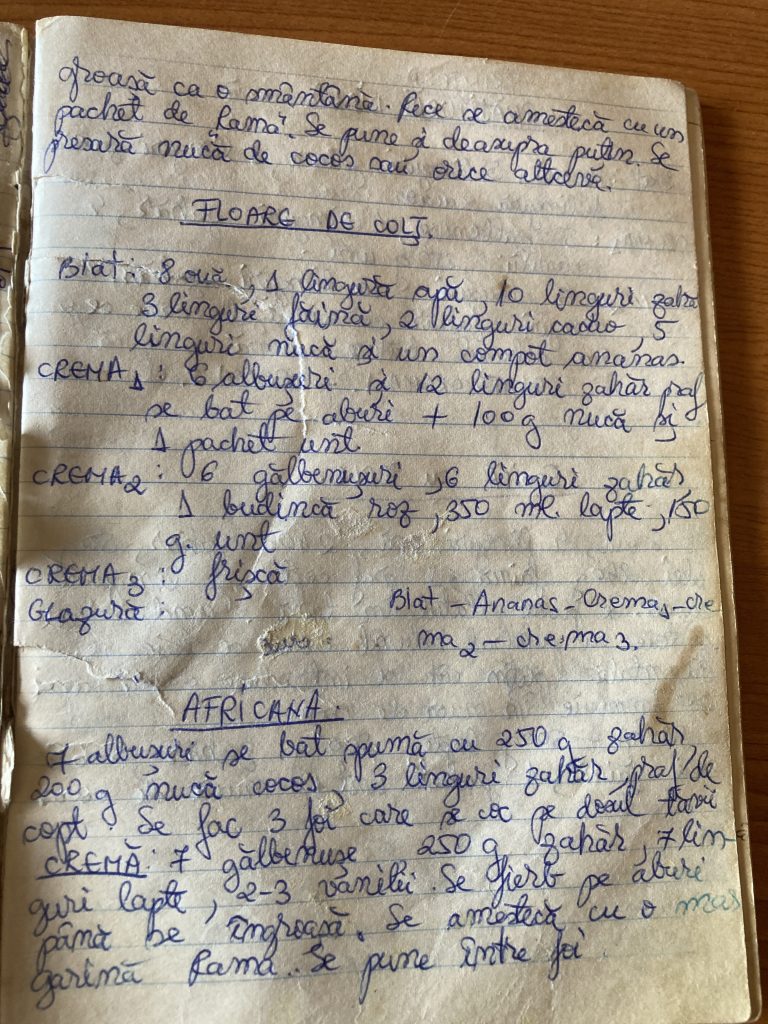 groasă ca o smântână. Rece se amestecă cu un
pachet de "Rama". Se pune și deasupra puțin. Se
presară nucă de cocos sau orice altceva.
FLOARE DE COLȚ.
Blat: 8 ouă, 1 lingură apă, 10 linguri zahăr
3 linguri făină, 2 linguri cacao, 5
linguri nucă și un compot ananas.
CREMA1: 6 albușuri și 12 linguri zahăr praf
se bat pe aburi + 100 g nucă și
1 pachet unt
CREMA2: 6 gălbenușuri, 6 linguri zahăr,
1 budincă roz, 350 ml. lapte, 150
g. unt
CREMA3: frișcă
Glazură:
Blat - Ananas - Crema1 - cre
ma2 - crema 3.
AFRICANA.
7 albușuri se bat spumă cu 250 g zahăr,
200 g nucă cocos, 3 linguri zahăr, praf de
copt. Se fac 3 foi care se coc pe dosul tăvii
CREMĂ: 7 gălbenușe 250 g zahăr, 7 lin-
guri lapte, 2-3 vanilii. Se fierb pe aburi
până se îngroașă. Se amestecă cu o mar
garină Rama. Se pune între foi.